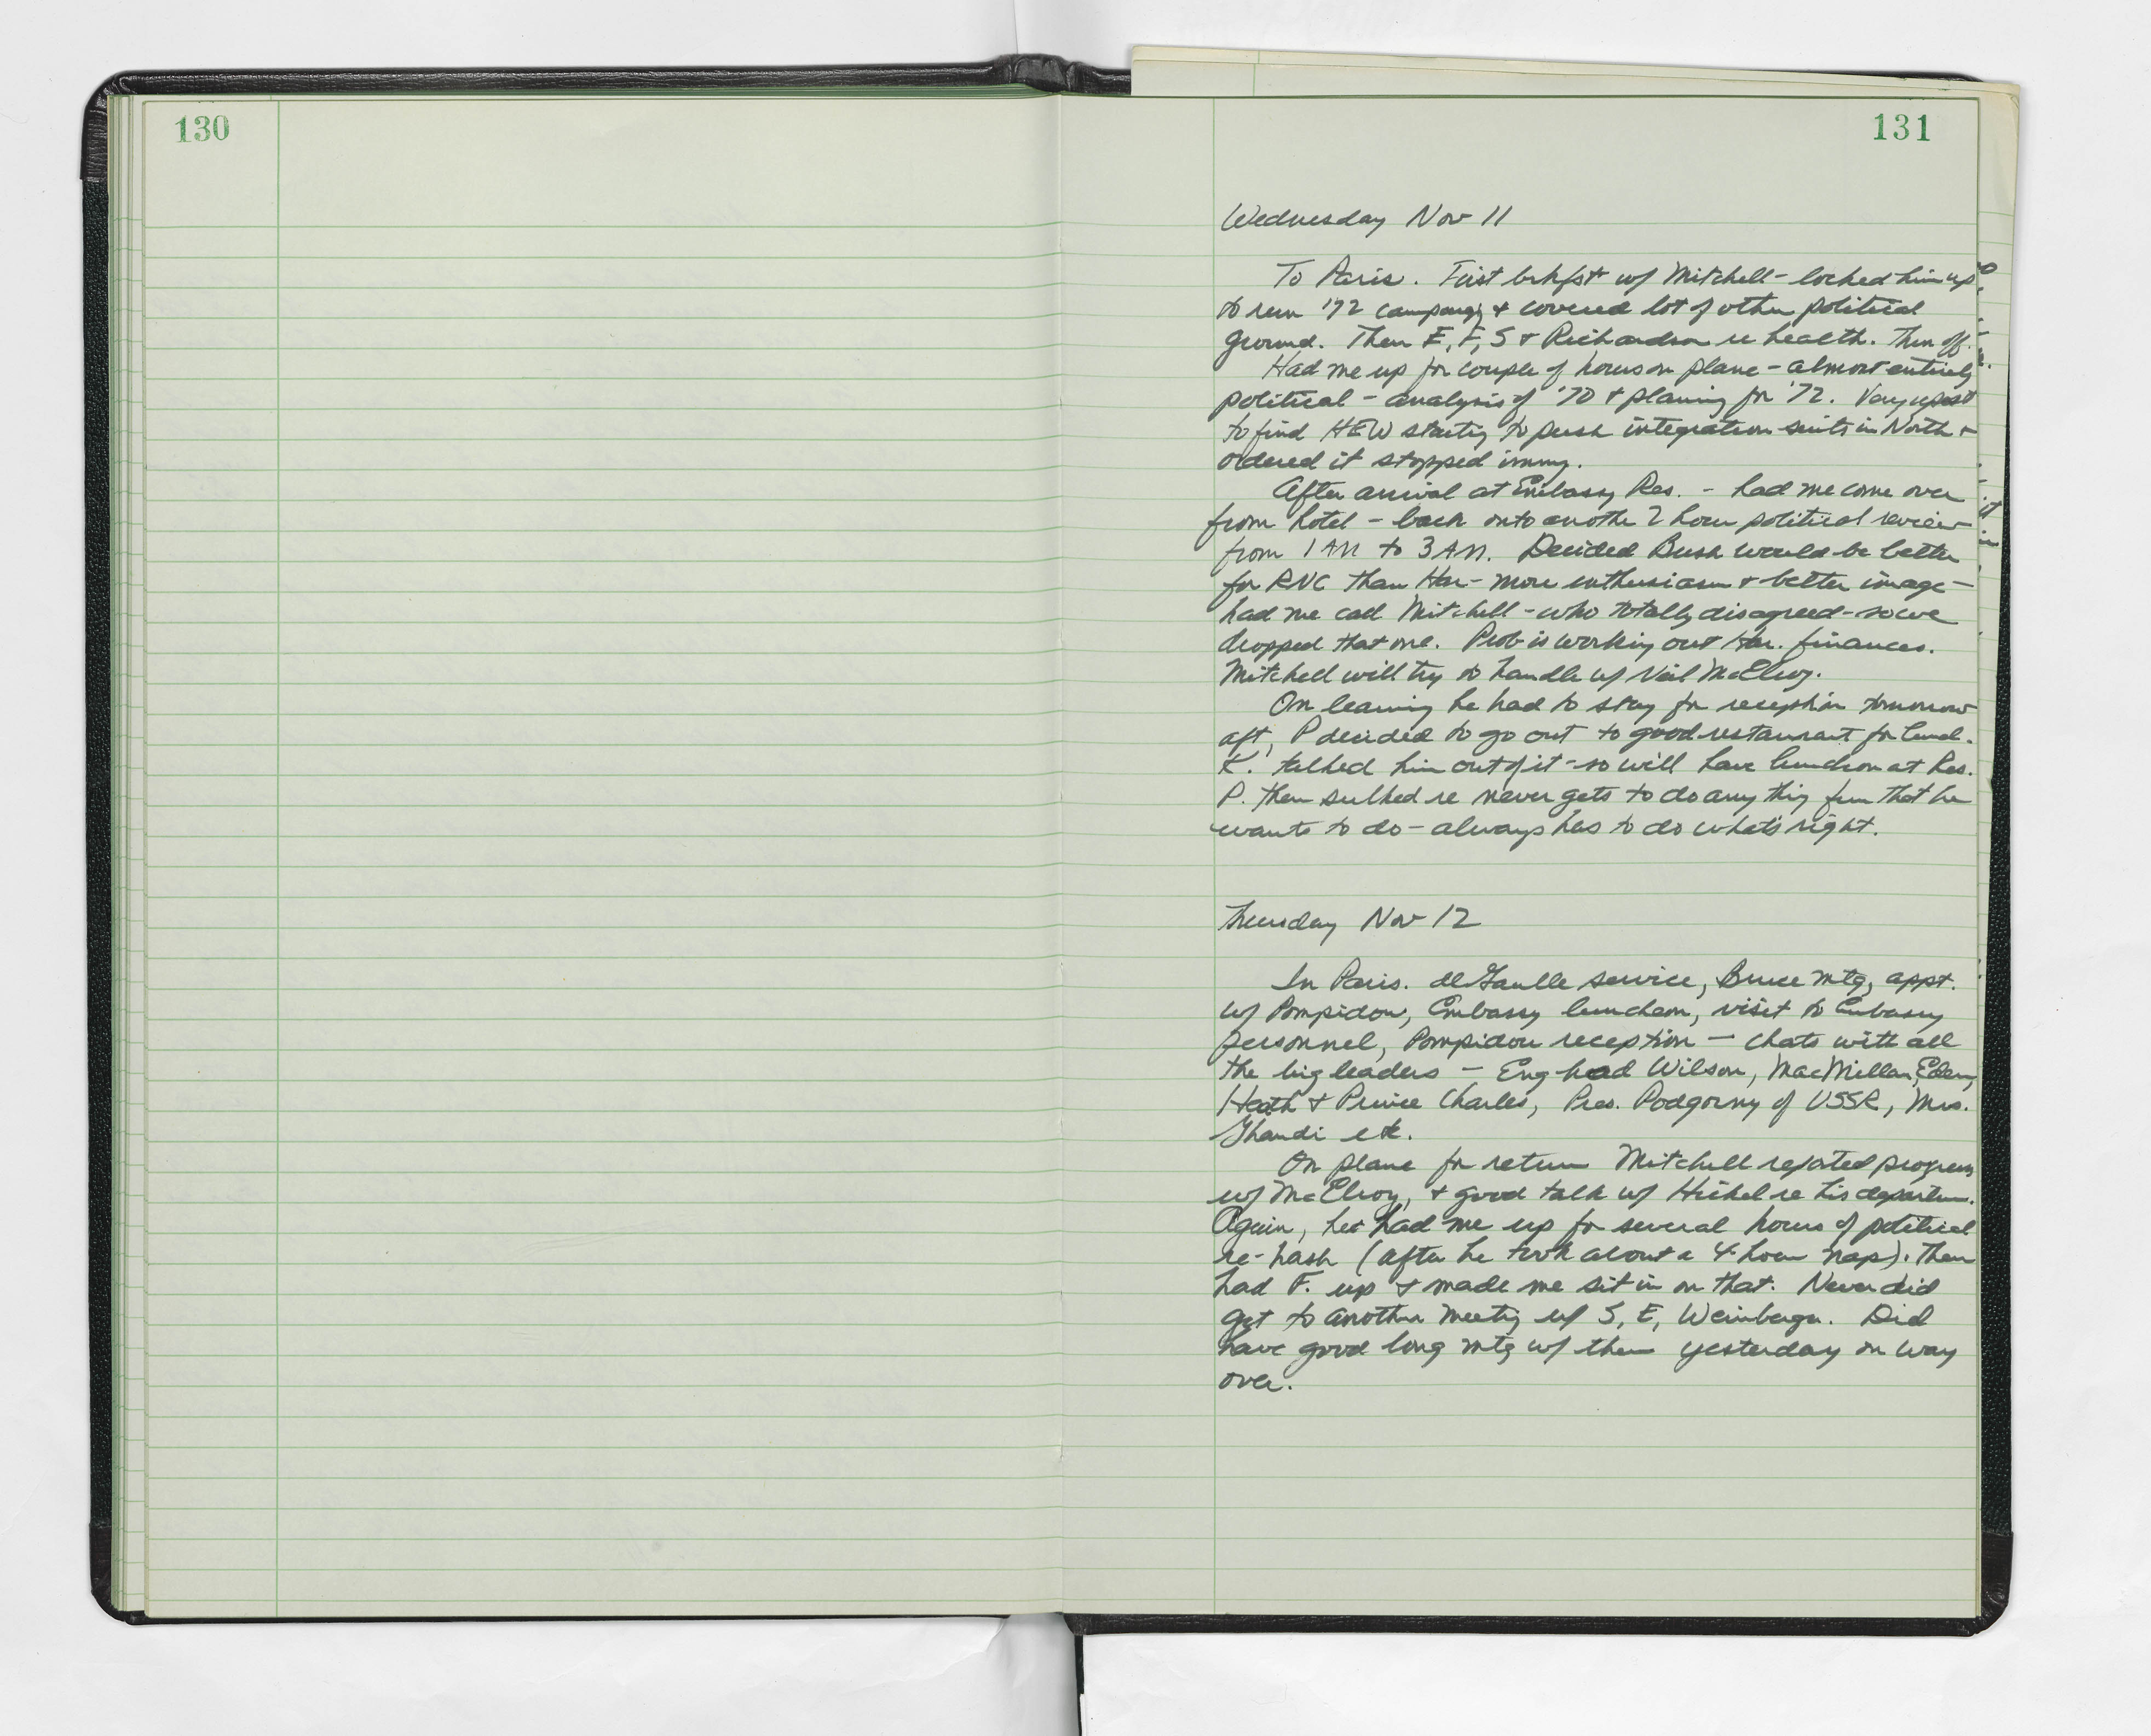 130
131
Wednesday Nov 11
To Paris. First brkfst w/ Mitchell - locked him up
to run '72 campaign & covered lot of other political
ground. Then E, F, S & Richardson re health. Then off.
Had me up for couple of hours on plane - almost entirely
political - analysis of '70 & planning for '72. Very upset
to find HEW starting to push integration suits in North &
ordered it stopped immy.
After arrival at Embassy Res. - had me come over
from hotel - back onto another 2 hour political review
from 1 AM to 3 AM. Decided Bush would be better
for RNC than Har - more enthusiasm & better image -
had me call Mitchell - who totally disagreed - so we
dropped that one. Prob is working out Har. finances.
Mitchell will try to handle w/ Neil McElroy.
On learning he had to stay for reception tomorrow
aft, P decided to go out to good restaurant for lunch.
K. talked him out of it - so will have luncheon at Res.
P. then sulked re never gets to do any thing fun that he
wants to do - always has to do what's right.
Thursday Nov 12
In Paris. deGaulle service, Bruce mtg, appt.
w/ Pompidou, Embassy luncheon, visit to Embassy
personnel, Pompidou reception - chats with all
the big leaders - Eng had Wilson, MacMillan, Eden,
Heath & Prince Charles, Pres. Podgorny of USSR, Mrs.
Ghandi etc.
On plane for return Mitchell reported progress
w/ McElroy, & good talk w/ Hickel re his departure.
Again, he had me up for several hours of political
re-hash (after he took about a 4-hour nap). Then
had F. up & made me sit in on that. Never did
get to another meeting w/ S, E, Weinberger. Did
have good long mtg w/ them yesterday on way
over.